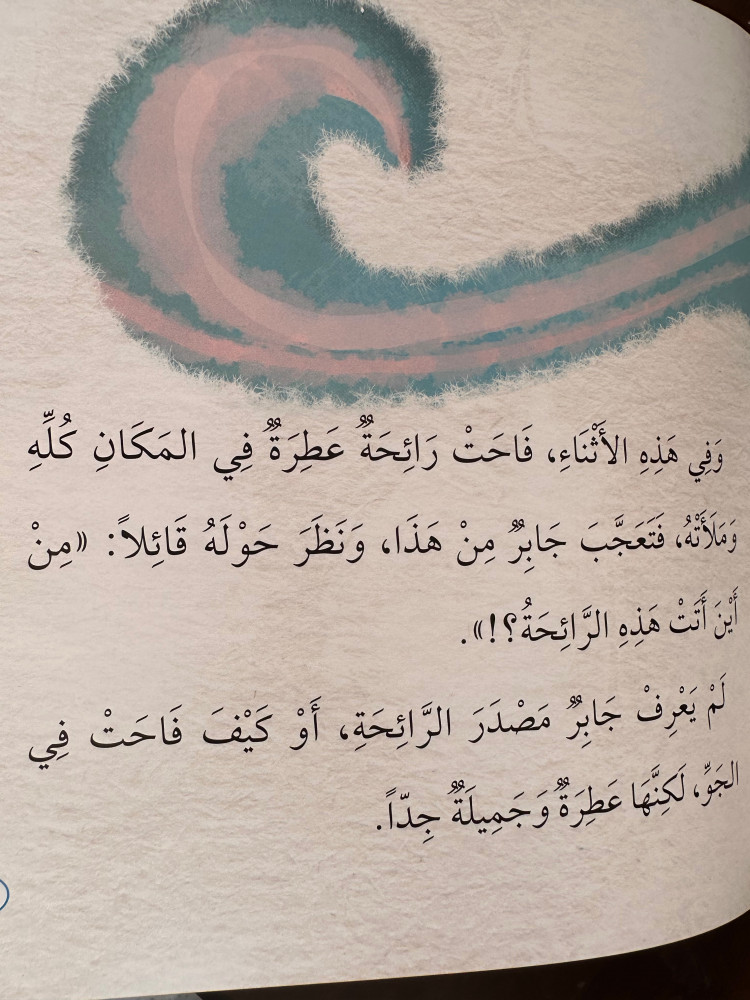 وَفِي هَذِهِ الأَثْنَاءِ، فَاحَتْ رَائِحَةٌ عَطِرَةٌ فِي المَكَانِ كُلِّهِ
وَمَلَأَتْهُ، فَتَعَجَّبَ جَابِرٌ مِنْ هَذَا، وَنَظَرَ حَوْلَهُ قَائِلاً: «مِنْ
أَيْنَ أَتَتْ هَذِهِ الرَّائِحَةُ؟!».
لَمْ يَعْرِفْ جَابِرٌ مَصْدَرَ الرَّائِحَةِ، أَوْ كَيْفَ فَاحَتْ فِي
الجَوِّ، لَكِنَّهَا عَطِرَةٌ وَجَمِيلَةٌ جِدّاً.